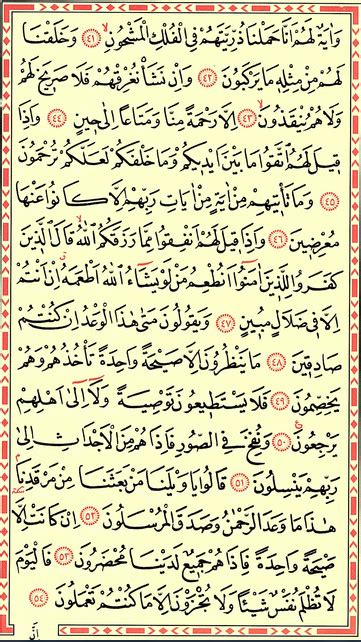 وَاٰيَةٌ لَهُمْ اَنَّا حَمَلْنَا ذُرِّيَّتَهُمْ فِي الْفُلْكِ الْمَشْحُونِۙ ﴿٤١﴾ وَخَلَقْنَا
لَهُمْ مِنْ مِثْلِه۪ مَا يَرْكَبُونَ ﴿٤٢﴾ وَاِنْ نَشَأْ نُغْرِقْهُمْ فَلَا صَر۪يخَ لَهُمْ
وَلَا هُمْ يُنْقَذُونَۙ ﴿٤٣﴾ اِلَّا رَحْمَةً مِنَّا وَمَتَاعًا اِلٰى ح۪ينٍ ﴿٤٤﴾ وَاِذَا
ق۪يلَ لَهُمُ اتَّقُوا مَا بَيْنَ اَيْد۪يكُمْ وَمَا خَلْفَكُمْ لَعَلَّكُمْ تُرْحَمُونَ
﴿٤٥﴾ وَمَا تَأْت۪يهِمْ مِنْ اٰيَةٍ مِنْ اٰيَاتِ رَبِّهِمْ اِلَّا كَانُوا عَنْهَا
مُعْرِض۪ينَ ﴿٤٦﴾ وَاِذَا ق۪يلَ لَهُمْ اَنْفِقُوا مِمَّا رَزَقَكُمُ اللّٰهُۙ قَالَ الَّذ۪ينَ
كَفَرُوا لِلَّذ۪ينَ اٰمَنُٓوا اَنُطْعِمُ مَنْ لَوْ يَشَٓاءُ اللّٰهُ اَطْعَمَهُۗ اِنْ اَنْتُمْ
اِلَّا ف۪ي ضَلَالٍ مُب۪ينٍ ﴿٤٧﴾ وَيَقُولُونَ مَتٰى هٰذَا الْوَعْدُ اِنْ كُنْتُمْ
صَادِق۪ينَ ﴿٤٨﴾ مَا يَنْظُرُونَ اِلَّا صَيْحَةً وَاحِدَةً تَأْخُذُهُمْ وَهُمْ
يَخِصِّمُونَ ﴿٤٩﴾ فَلَا يَسْتَط۪يعُونَ تَوْصِيَةً وَلَٓا اِلٰٓى اَهْلِهِمْ
يَرْجِعُونَ۟ ﴿٥٠﴾ وَنُفِخَ فِي الصُّورِ فَاِذَا هُمْ مِنَ الْاَجْدَاثِ اِلٰى
رَبِّهِمْ يَنْسِلُونَ ﴿٥١﴾ قَالُوا يَا وَيْلَنَا مَنْ بَعَثَنَا مِنْ مَرْقَدِنَاۢ
هٰذَا مَا وَعَدَ الرَّحْمٰنُ وَصَدَقَ الْمُرْسَلُونَ ﴿٥٢﴾ اِنْ كَانَتْ اِلَّا
صَيْحَةً وَاحِدَةً فَاِذَا هُمْ جَم۪يعٌ لَدَيْنَا مُحْضَرُونَ ﴿٥٣﴾ فَالْيَوْمَ
لَا تُظْلَمُ نَفْسٌ شَيْـًٔا وَلَا تُجْزَوْنَ اِلَّا مَا كُنْتُمْ تَعْمَلُونَ ﴿٥٤﴾
اِنَّ